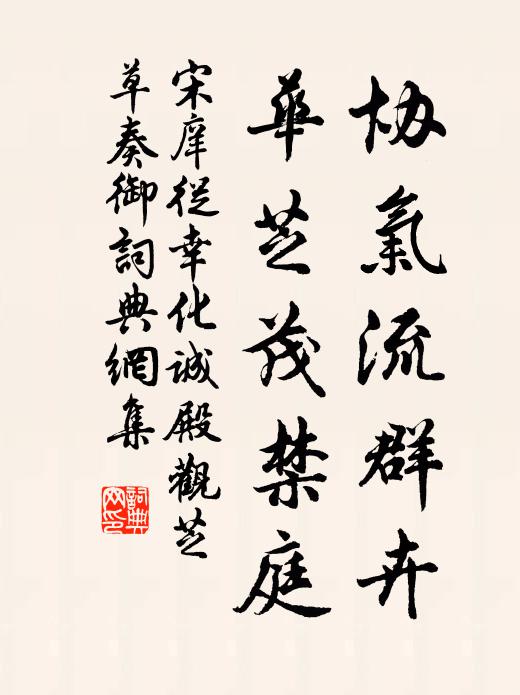 协氣流群卉
華芝茂禁庭
宋庠從幸化诚殿觀芝
草奏御詞典網集
詞典网印